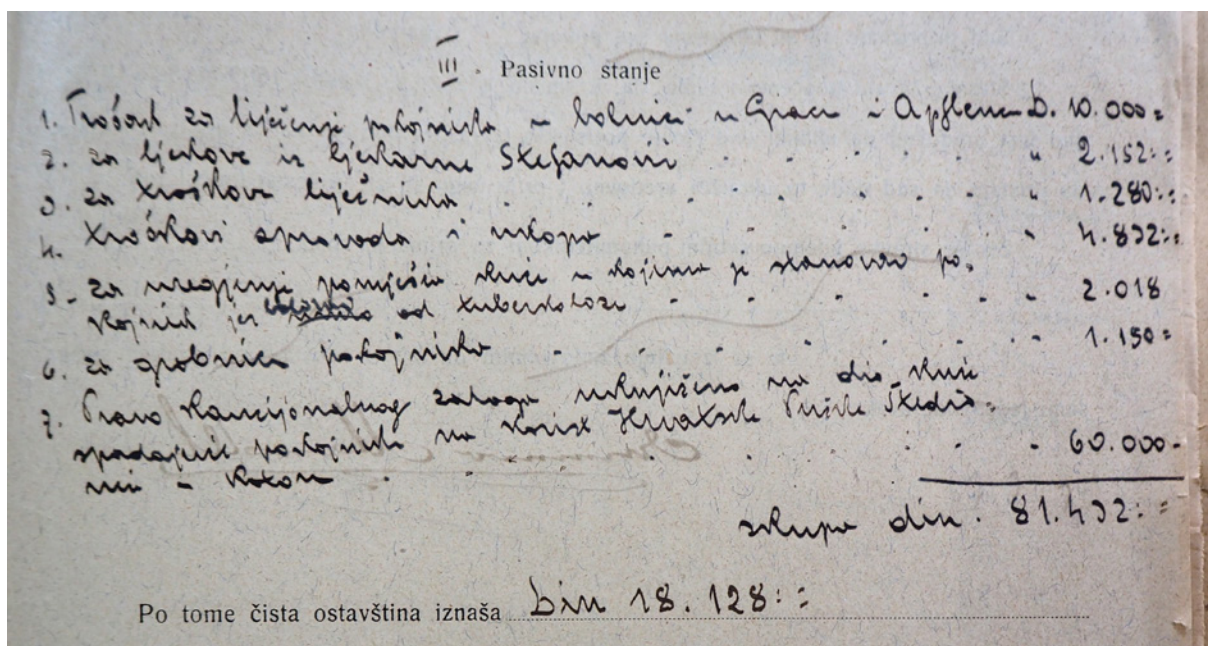 III. Pasivno stanje
1. Trošak za liječenje pokojnika u bolnici u Gracu i Apflenu D. 10.000=
2. za ljekove iz ljekarne Stefanovu . . . . . . " 2.152:=
3. za troškove liječnika . . . . . . . . . " 1.280:=
4. troškovi sprovoda i ukopa . . . . . . . " 4.832:=
5. za uregjenje pomješća kuće u kojima je stanovao po-
kojnik jer od tuberkoloze . . . . . . . 2.018
6. za grobnicu pokojnika . . . . . . . . 1.150=
7. Pravo kaucijonalnog zaloga uknjiženo na dio kuće
spadajuće pokojniku na korist Hrvatske Pučke Štedio-
nici u Kotoru . . . . . . . . 60.000-
skupa din. 81.432:=
Po tome čista ostavština iznaša Din 18.128:=